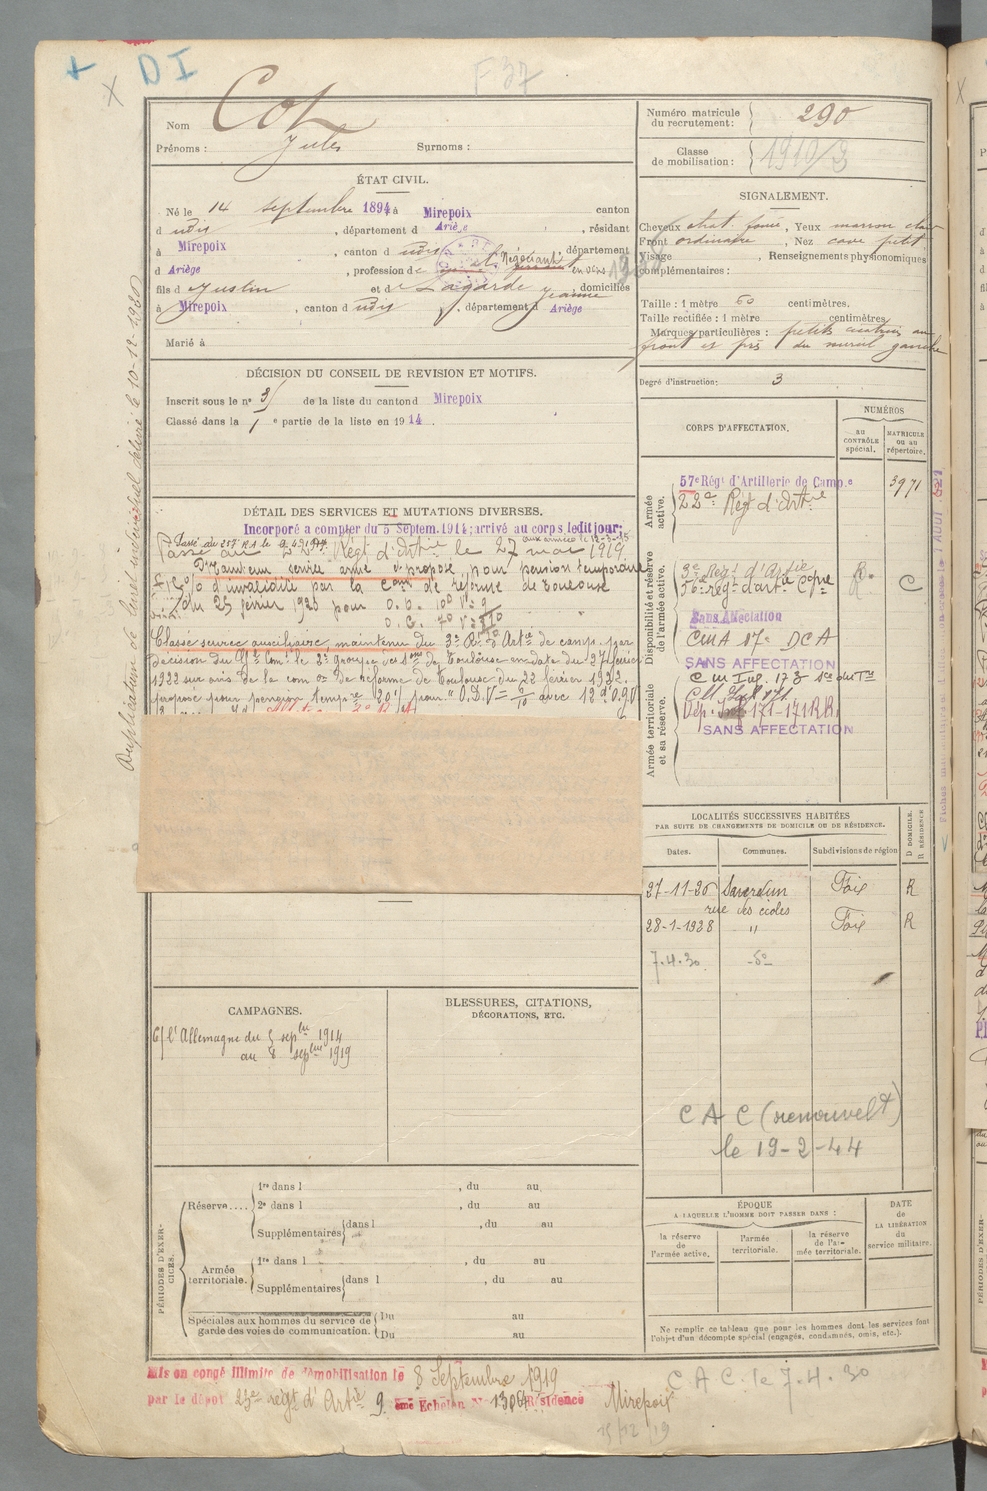 DI
F 37
Nom Col
Prénoms : Jules Surnoms :
Numéro matricule du recrutement : 290
Classe de mobilisation : 1910/3
ÉTAT CIVIL.
Né le 14 septembre 1894 à Mirepoix canton
d udis, département d Ariège, résidant
à Mirepoix, canton d udis, département
d Ariège, profession de Négociant en vins
fils d Justin et de Lagarde Jeanne, domiciliés
à Mirepoix, canton d udis, département d Ariège
Marié à
SIGNALEMENT.
Cheveux chat. foncé, Yeux marron clair
Front ordinaire, Nez cave petit
Visage , Renseignements physionomiques
complémentaires :
Taille : 1 mètre 60 centimètres.
Taille rectifiée : 1 mètre centimètres
Marques particulières : petites cicatrices au
front et près du sourcil gauche
Degré d'instruction : 3
DÉCISION DU CONSEIL DE REVISION ET MOTIFS.
Inscrit sous le n° 3 de la liste du canton d Mirepoix
Classé dans la 1e partie de la liste en 1914.
DÉTAIL DES SERVICES ET MUTATIONS DIVERSES.
Incorporé a compter du 5 Septem. 1914; arrivé au corps ledit jour;
aux armées le 12-3-15
Passé au 257 RA le
Passé au 22e Régt d'Artie le 27 mai 1919
service armé proposé pour pension temporaire
% d'invalidité par la Com de réforme de Toulouse
du 25 février 1920 pour
Classé service auxiliaire, maintenu du 3e R. d'Artie de camp. par
décision du
1922 sur avis de la com on de Réforme de Toulouse du 22 février 1922.
proposé pour pension tempre 20% pour
CORPS D'AFFECTATION.
NUMÉROS
au CONTRÔLE spécial.
MATRICULE ou au répertoire.
Armée active.
57e Régt d'Artillerie de Camp.e 3971
22e Régt d'Artrie
Disponibilité et réserve de l'armée active.
3e Régt d'Artie R.
56e régt d'artie C
Sans Affectation
CMA 17e DCA
SANS AFFECTATION
Armée territoriale et sa réserve.
171-171 RR
SANS AFFECTATION
LOCALITÉS SUCCESSIVES HABITÉES
PAR SUITE DE CHANGEMENTS DE DOMICILE OU DE RÉSIDENCE.
Dates. Communes. Subdivisions de région D DOMICILE. R RÉSIDENCE
27-11-26 Saverdun Foix R
rue des écoles
28-1-1928 " Foix R
7.4.30 do
CAC (renouvelt)
le 19-2-44
CAMPAGNES.
C/ l'Allemagne du 5 septbre 1914
au 8 septbre 1919
BLESSURES, CITATIONS, DÉCORATIONS, ETC.
PÉRIODES D'EXERCICES.
Réserve....
1re dans l , du au
2e dans l , du au
Supplémentaires dans l , du au
Armée territoriale.
1re dans l , du au
Supplémentaires dans l , du au
Spéciales aux hommes du service de garde des voies de communication.
Du au
Du au
ÉPOQUE
A LAQUELLE L'HOMME DOIT PASSER DANS :
la réserve de l'armée active.
l'armée territoriale.
la réserve de l'armée territoriale.
DATE de LA LIBÉRATION du service militaire.
Ne remplir ce tableau que pour les hommes dont les services font
l'objet d'un décompte spécial (engagés, condamnés, omis, etc.).
Mis en congé illimité de démobilisation le 8 Septembre 1919
par le dépôt 23e régt d'Artie 9 ème Echelon N° 1306 Résidence Mirepoix
CAC. le 7.4.30
15/12/19
Duplication de livret individuel délivré le 10-12-1930